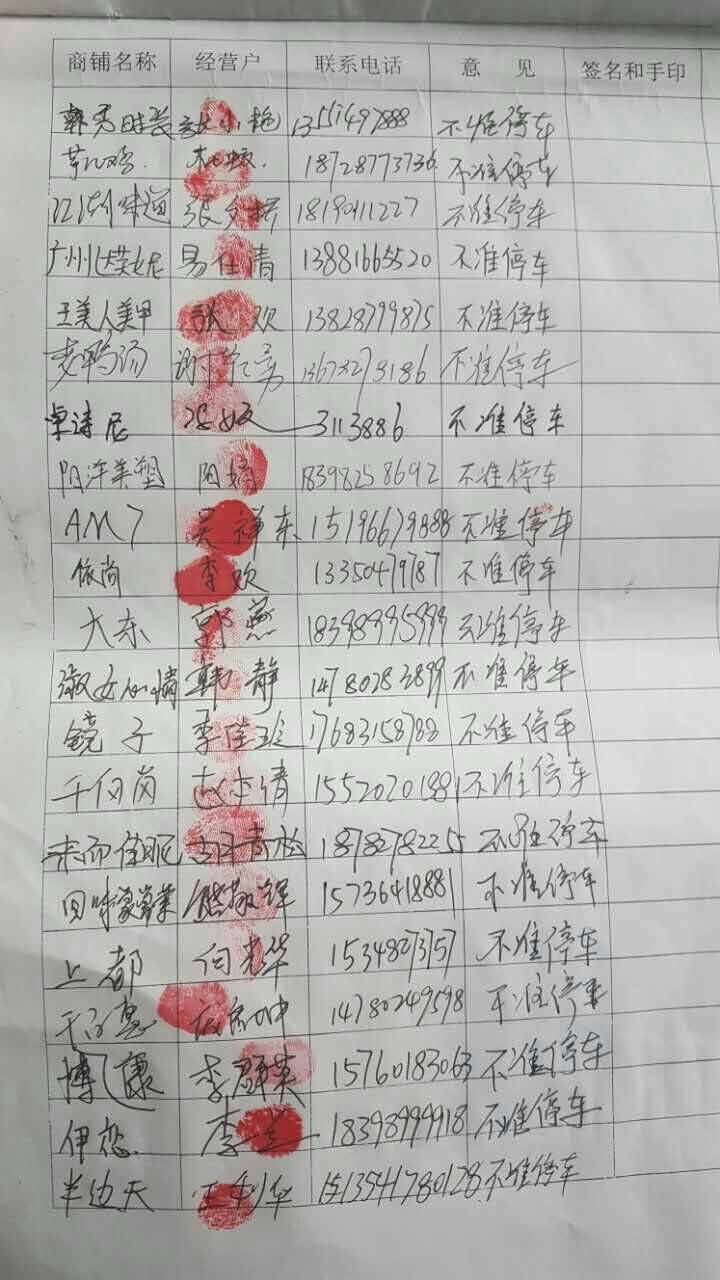 商铺名称 经营户 联系电话 意见 签名和手印
小艳 13551497888 不准停车
18728773736 不准停车
张 18190411227 不准停车
广州 易仕清 13881665520 不准停车
王美人美甲 张欢 13828799875 不准停车
老鸭汤 谢 不准停车
卓诗尼 3113886 不准停车
阳洋美塑 阳娟 18398258692 不准停车
AM7 吴祥东 15196679888 不准停车
依尚 李欢 13350479787 不准停车
大东 郭燕 18398995999 不准停车
淑女心情 韩静 14780282899 不准停车
镜子 李佳 17683158788 不准停车
千百岗 赵本清 15520201881 不准停车
青松 18782782255 不准停车
回味 熊 15736418881 不准停车
上都 向光华 15348273757 不准停车
14780249598 不准停车
博康 李群英 15760183063 不准停车
伊恋 李兰 18398999918 不准停车
半边天 王利华 13541780128 不准停车